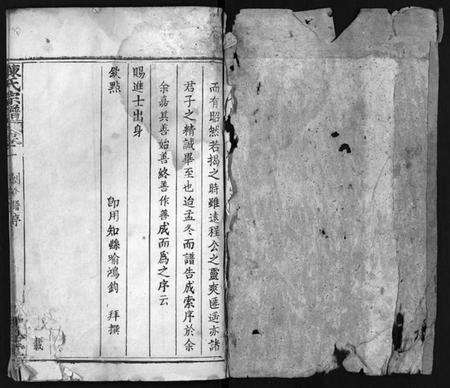 而有昭然若揭之時雖遠程公之靈爽匪遥亦諸
君子之精誠畢至也迨孟冬而譜告成索序於余
余嘉其善始善終善作善成而為之序云
賜進士出身
欽點
即用知縣喻鴻鈞 拜撰
陳氏宗譜 卷一